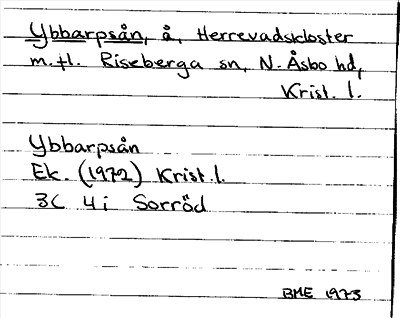 Ybbarpsån, å, Herrevadskloster
m.fl. Riseberga sn, N. Åsbo hd,
Krist. l.
Ybbarpsån
Ek. (1972) Krist. l.
3C 4i Sorröd
BME 1973